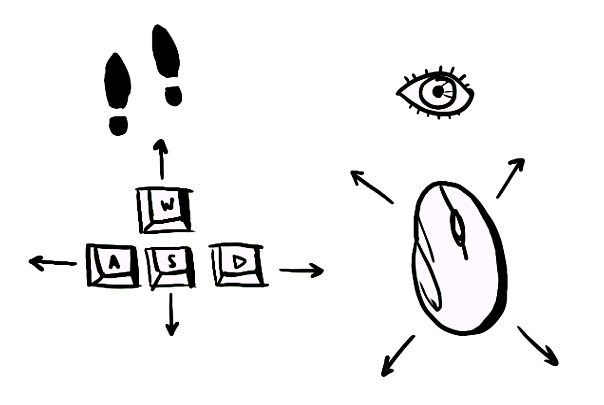 W
A S D